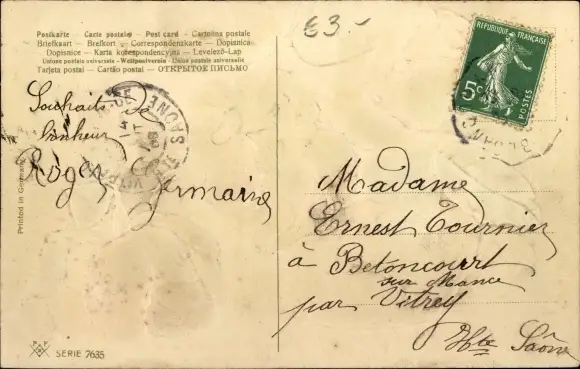 Postkarte – Carte postale – Post card – Cartolina postale
Briefkaart – Brefkort – Correspondenzkarte – Dopisnica
Dopisnice – Karta korespondencyjna – Levelező-Lap
Union postale universelle – Weltpostverein – Unione postale universale
Tarjeta postal – Cartão postal – ОТКРЫТОЕ ПИСЬМО
£3.-
REPUBLIQUE FRANÇAISE
5c
POSTES
Souhaits de
bonheur
Roger Germaine
SAONE
VITREY
Madame
Ernest Tournier
à Betoncourt
sur Mance
par Vitrey
Hte Saône
Printed in Germany
SERIE 7635